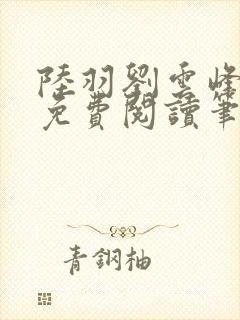 陸羽劉雲峰
免費閱讀筆
青鋼柚